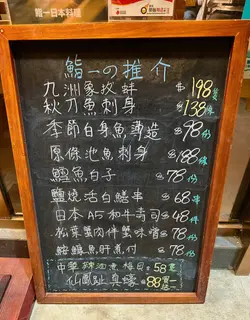 鮨一日本料理
鮨一の推介
九洲象拔蚌 $198
秋刀魚刺身 $138條
季節白身魚薄造 $98份
原條池魚刺身 $188條
鱈魚白子 $78份
鹽燒活白鱔串 $68串
日本A5和牛壽司 $48
松葉蟹肉伴蟹味噌 $78份
鮟鱇魚肝煮付 $78份
中華辣油煮 $58
仙鳳趾真蠔 $88